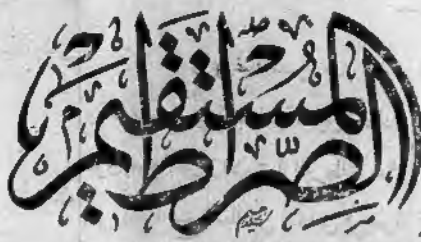 الصِّرَاطُ المُسْتَقِيم